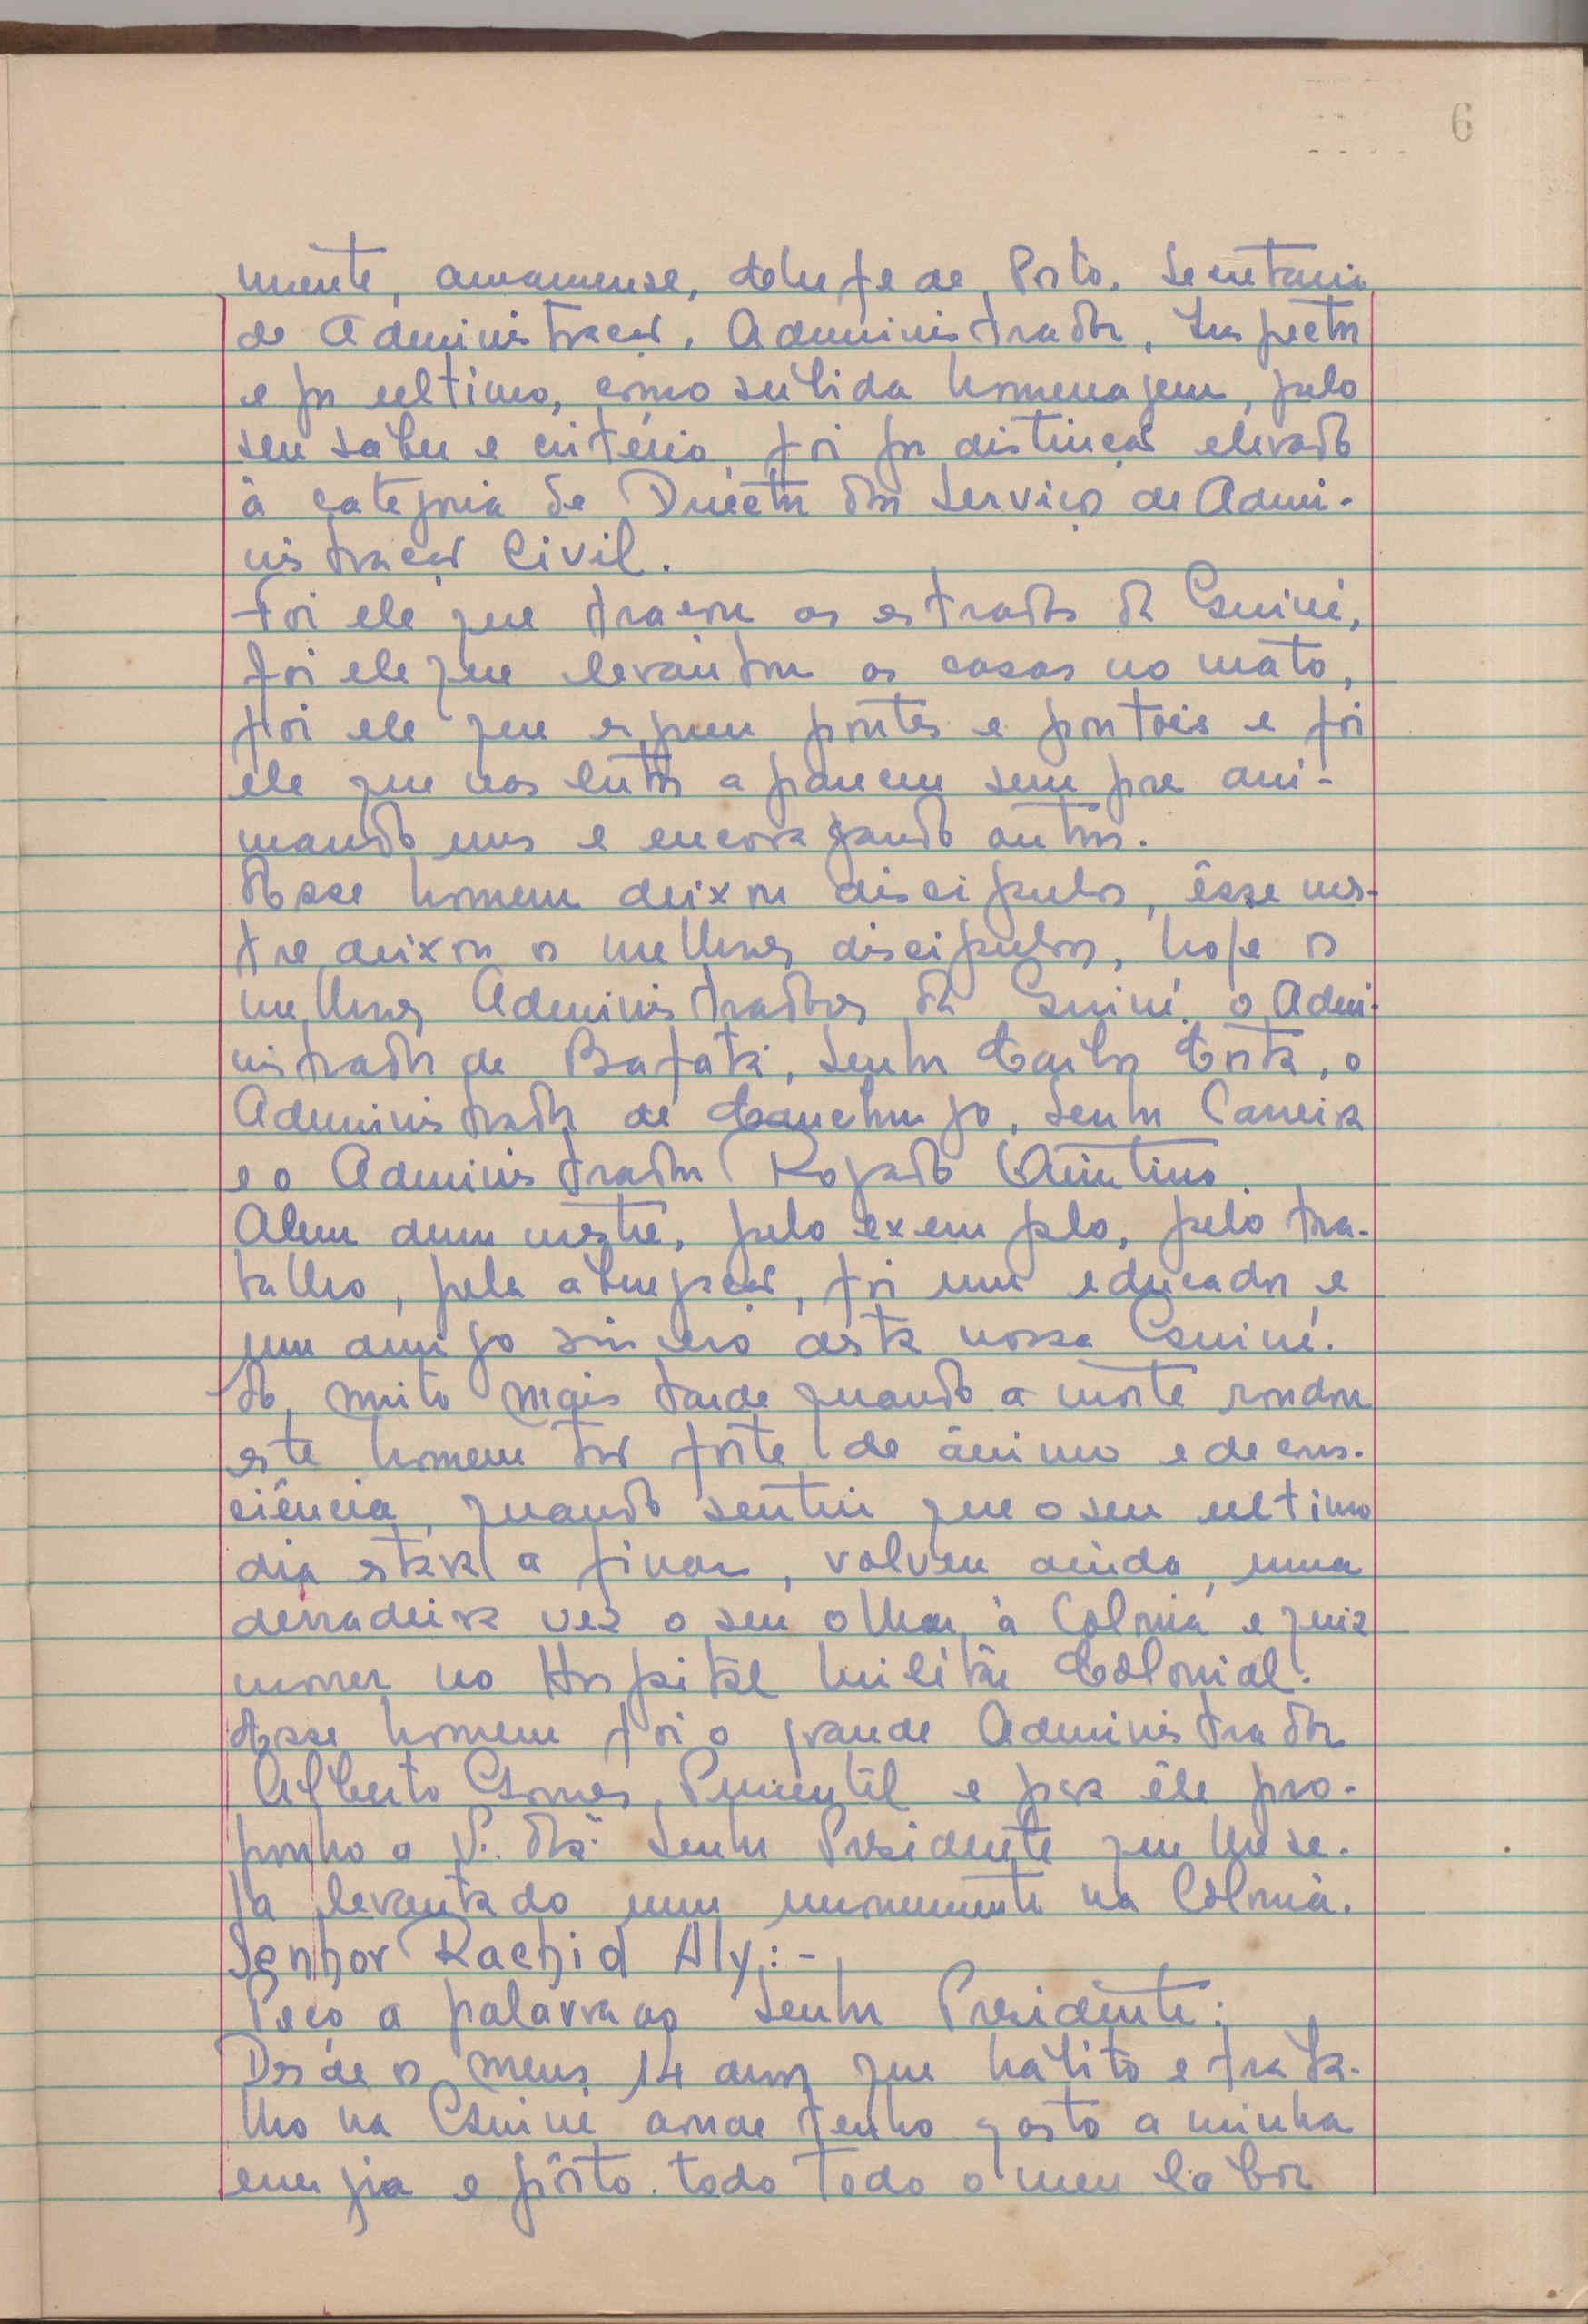 6
mente, amanuense, Chefe de Posto, Secretario
de Administração, Administrador, Inspector
e por ultimo, como subida homenagem, pelo
seu saber e critério, foi por distinção elevado
à categoria de Director dos Serviços de Admi-
nistração Civil.
Foi ele que traçou as estradas da Guiné,
foi ele que levantou as casas no mato,
foi ele que ergueu pontes e pontões e foi
ele que nos lutos aparecem sempre ani-
mando uns e encorajando outros.
Esse homem deixou discipulos, êsse mes-
tre deixou os melhores discipulos, hoje os
melhores Administradores da Guiné, o Admi-
nistrador de Bafatá, Senhor Carlos Costa, o
Administrador de Canchungo, Senhor Carreira
e o Administrador Rogado Quintino.
Alem dum mestre, pelo exemplo, pelo tra-
balho, pela abnegação, foi um educador e
um amigo sincero desta nossa Guiné.
E, muito mais tarde quando a morte rondou
este homem tão forte de ânimo e de cons-
ciência, quando sentiu que o seu ultimo
dia estava a findar, volveu ainda, uma
derradeira vez o seu olhar à Colónia e quiz
morrer no Hospital Militar Colonial.
Esse homem foi o grande Administrador
Alberto Gomes Pimentel e para êle pro-
ponho a V. Exª. Senhor Presidente que lhe se-
ja levantado um monumento na Colónia.
Senhor Rachid Aly:-
Peço a palavra ao Senhor Presidente:
Desde os meus 14 anos que habito e traba-
lho na Guiné aonde tenho gasto a minha
energia e pôsto todo todo o meu labor